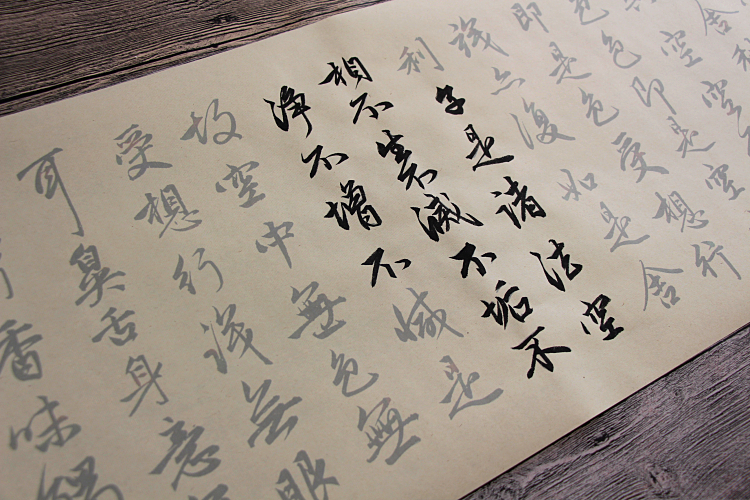 舍利
空空
色色即是空空
即是色受想行
識亦復如是舍
利子是諸法空
相不生不滅不垢不
淨不增不減是
故空中無色無
受想行識無眼
耳鼻舌身意
香味觸